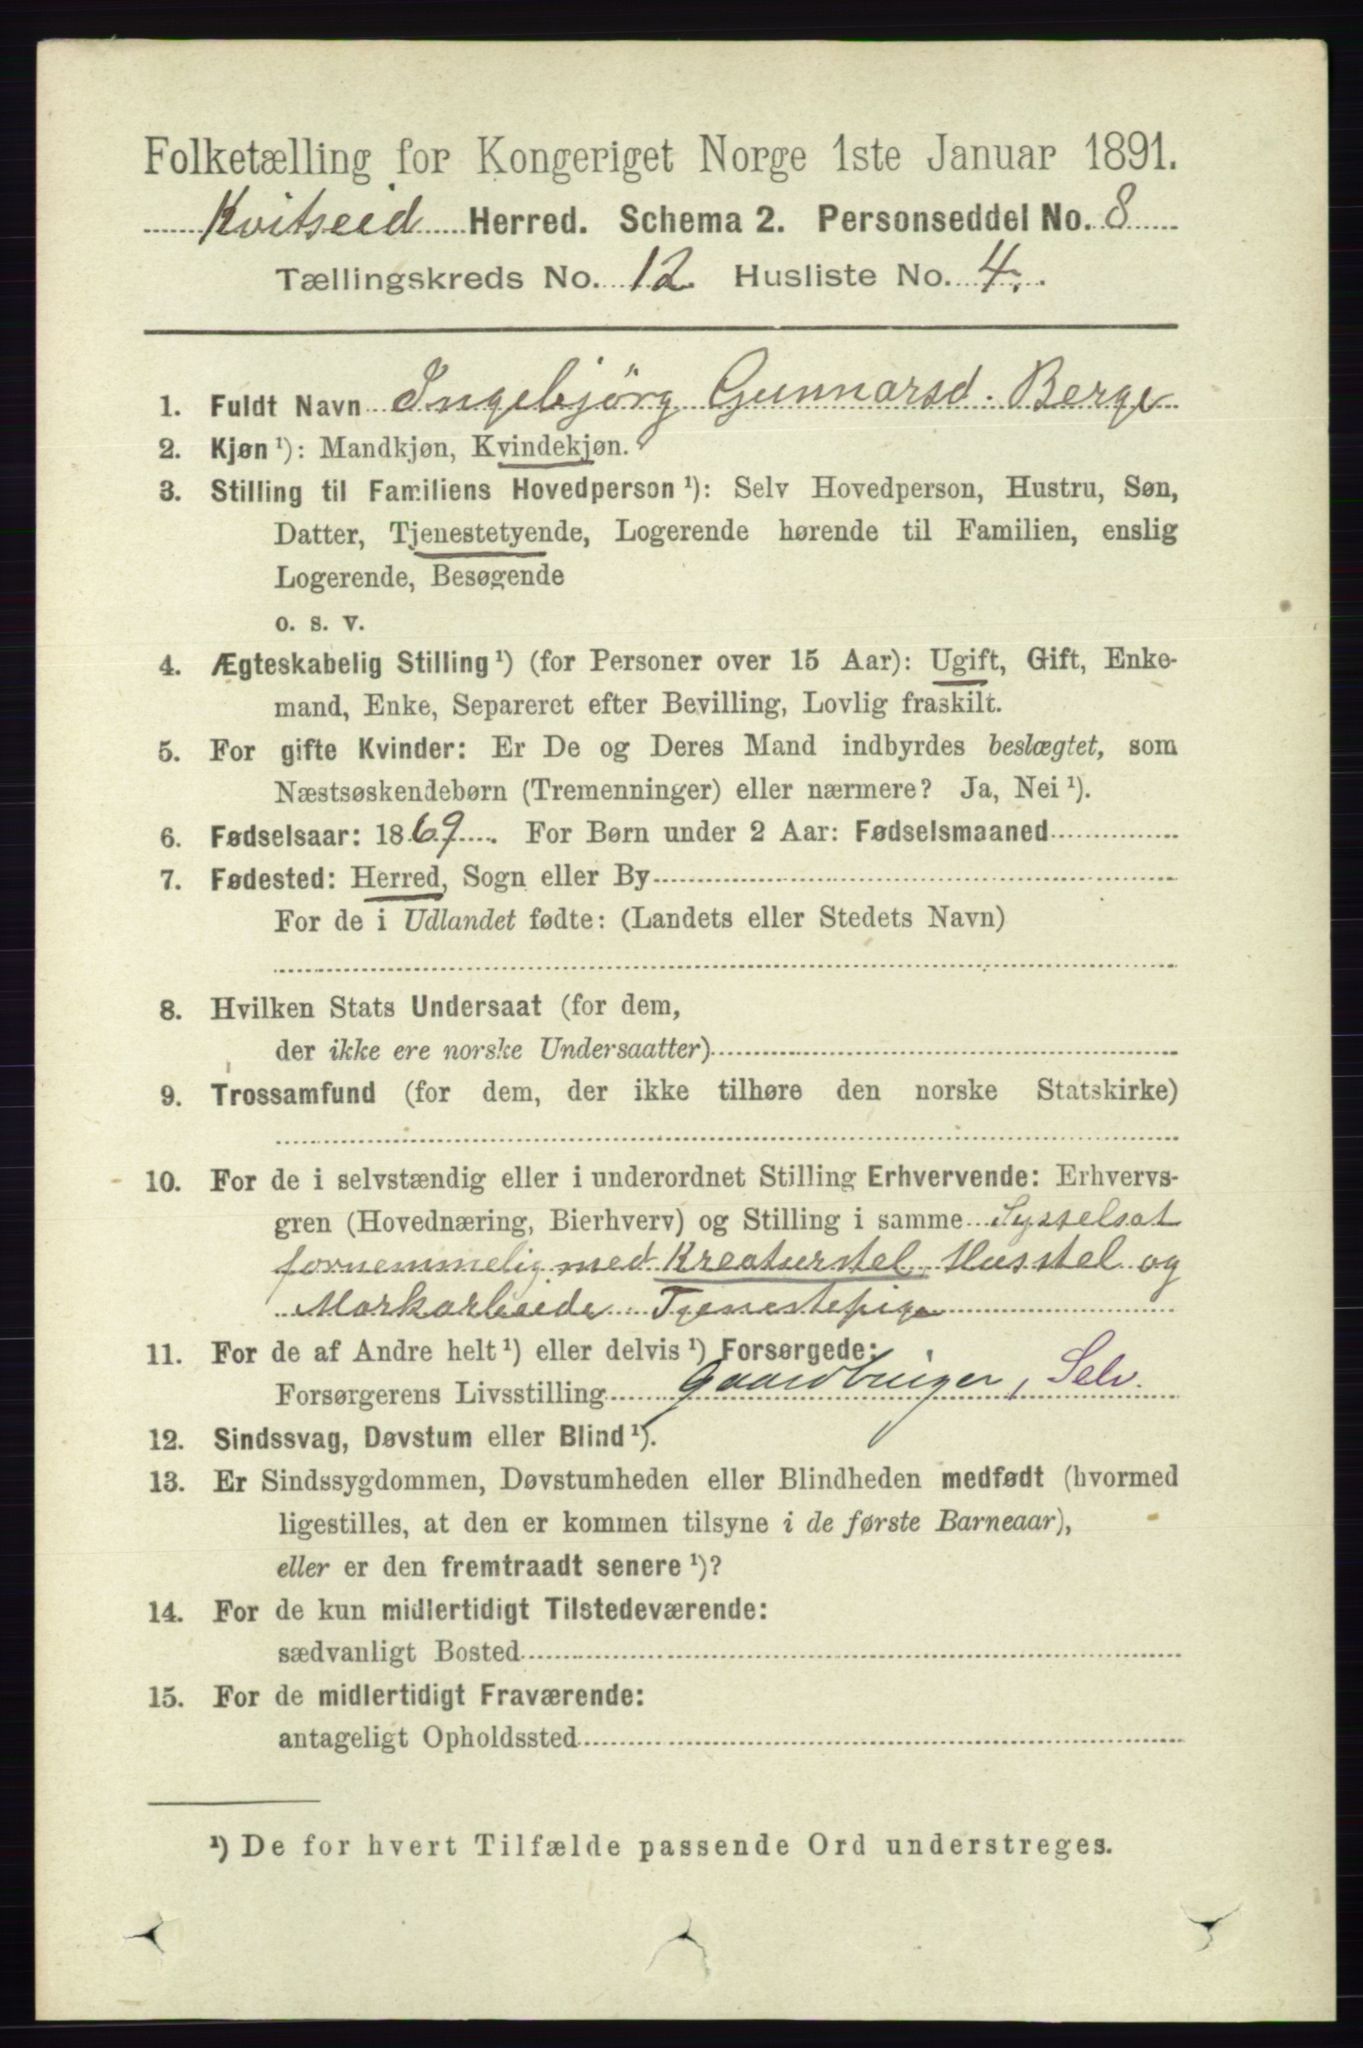 Folketælling for Kongeriget Norge 1ste Januar 1891.
Kvitseid Herred. Schema 2. Personseddel No. 8
Tællingskreds No. 12 Husliste No. 4.
1. Fuldt Navn Ingebjörg Gunnarsd. Berge
2. Kjøn ¹): Mandkjøn, Kvindekjøn.
3. Stilling til Familiens Hovedperson ¹): Selv Hovedperson, Hustru, Søn,
Datter, Tjenestetyende, Logerende hørende til Familien, enslig
Logerende, Besøgende
o. s. v.
4. Ægteskabelig Stilling ¹) (for Personer over 15 Aar): Ugift, Gift, Enke-
mand, Enke, Separeret efter Bevilling, Lovlig fraskilt.
5. For gifte Kvinder: Er De og Deres Mand indbyrdes beslægtet, som
Næstsøskendebørn (Tremenninger) eller nærmere? Ja, Nei ¹).
6. Fødselsaar: 1869. For Børn under 2 Aar: Fødselsmaaned
7. Fødested: Herred, Sogn eller By
For de i Udlandet fødte: (Landets eller Stedets Navn)
8. Hvilken Stats Undersaat (for dem,
der ikke ere norske Undersaatter)
9. Trossamfund (for dem, der ikke tilhøre den norske Statskirke)
10. For de i selvstændig eller i underordnet Stilling Erhvervende: Erhvervs-
gren (Hovednæring, Bierhverv) og Stilling i samme Sysselsat
fornemmelig med Kreaturstel, Husstel og
Markarbeide Tjenestepige
11. For de af Andre helt ¹) eller delvis ¹) Forsørgede:
Forsørgerens Livsstilling Gaardbruger, Selv.
12. Sindssvag, Døvstum eller Blind ¹).
13. Er Sindssygdommen, Døvstumheden eller Blindheden medfødt (hvormed
ligestilles, at den er kommen tilsyne i de første Barneaar),
eller er den fremtraadt senere ¹)?
14. For de kun midlertidigt Tilstedeværende:
sædvanligt Bosted
15. For de midlertidigt Fraværende:
antageligt Opholdssted
¹) De for hvert Tilfælde passende Ord understreges.